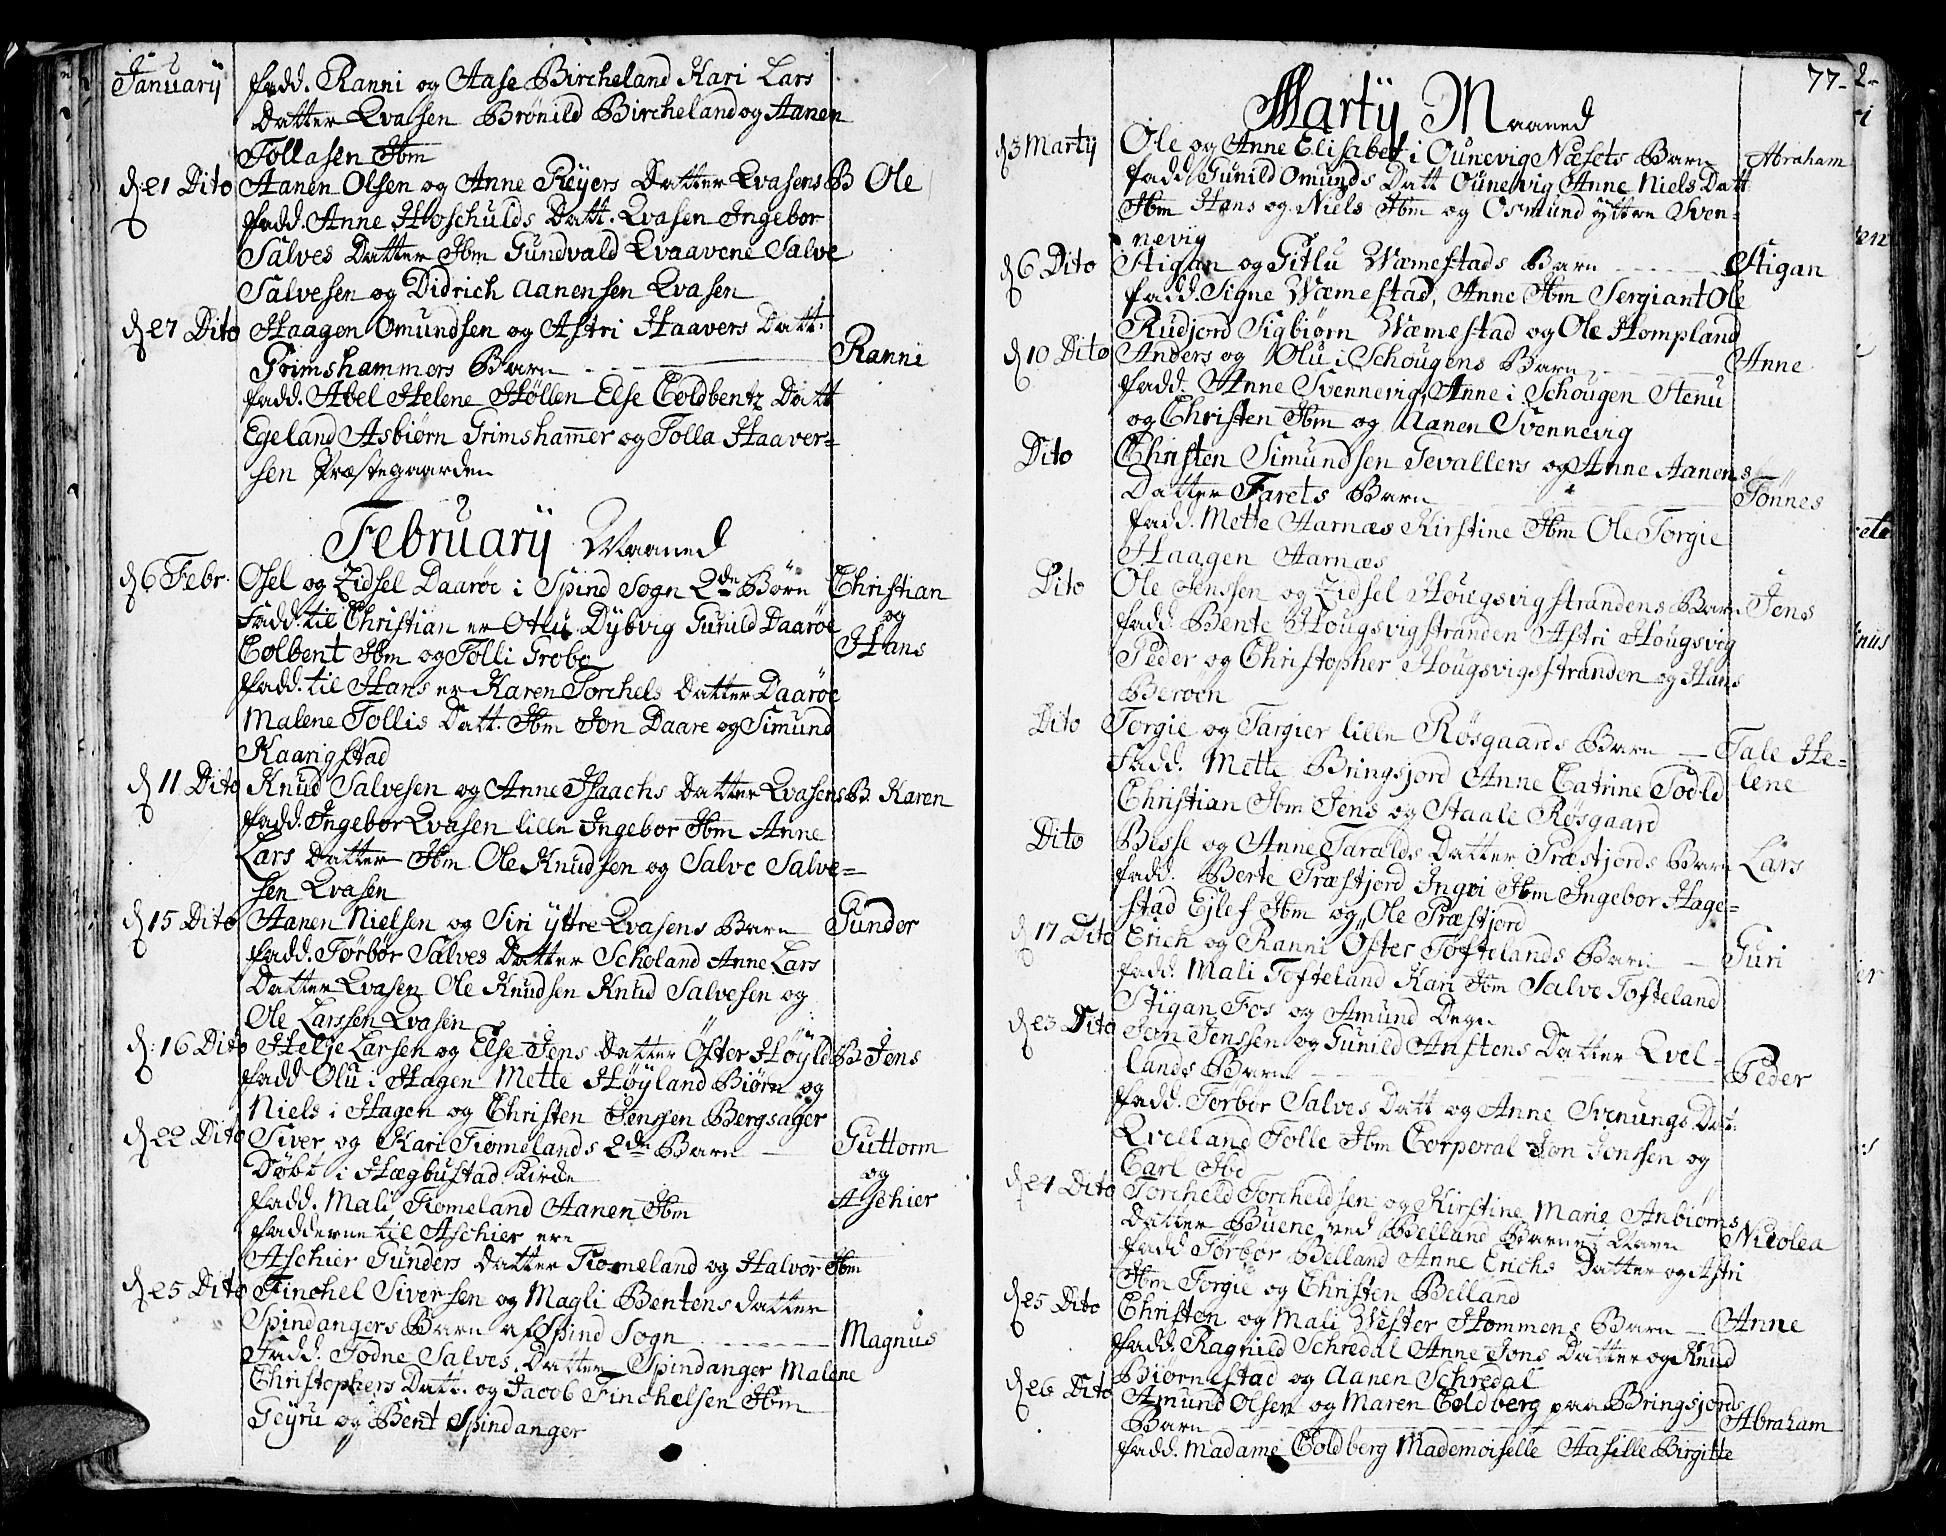 Januarij
fadd. Ranni og Aase Bircheland Kari Lars
Datter Qvasen Brönild Bircheland og Aanen
Tollasen Ibm
d. 21 Dito Aanen Olsen og Anne Reyers Datter Qvasens B Ole
fadd. Anne Hoschulds Datt. Qvasen Ingebor
Salves Datter Ibm Gundvald Qvaavene Salve
Salvesen og Didrich Aanensen Qvasen
d 27 Dito Haagen Omundsen og Astri Haavers Datt.
Grimshammers Barn Ranni
fadd. Abel Helene Höllen Else Coldbentz Datt
Egeland Asbiörn Grimshamer og Tolla Haaver=
sen Præstegaarden
Februarij Maaned
d 6 Febr. Osel og Zidsel Daaröe i Spind Sogn 2de Börn Christian
Fadd. til Christian er Olu Dybvig Gunild Daaröe og
Colbent Ibm og Tolli Grobe Hans
fadd. til Hans er Karen Torchels Datter Daaröe
Malene Tollis Datt. Ibm Jon Daare og Simund
Kaarigstad
d 11 Dito Knud Salvesen og Anne Isaachs Datter Qvasens B. Karen
fadd. Ingebor Qvasen lille Ingebor Ibm Anne
Lars Datter Ibm Ole Knudsen og Salve Salve=
sen Qvasen
d 15 Dito Aanen Nielsen og Siri yttre Qvasens Barn Gunder
fadd. Törbör Salves Datter Scholand Anne Lars
Datter Qvasen Ole Knudsen Knud Salvesen og
Ole Larssen Qvasen
d. 16 Dito Helje Larsen og Else Jens Datter Öster Höyld B Jens
fadd Olu i Hagen Mette Höyland Biörn og
Niels i Hagen og Christen Jensen Bergsager
d 22 Dito Siver og Kari Fiomelands 2de Barn Guttorm
Döbt i Hægbustad Kirche og
fadd. Mali Fiomeland Aanen Ibm Aschier
Fadderne til Aschier ere
Aschier Gunders Datter Fiomeland og Halvor Ibm
d 25 Dito Finchel Siversen og Magli Bentens Datter
Spindangers Barn af Spind Sogn Magnus
Fadd. Todne Salves Datter Spindanger Malene
Christophers Datt. og Jacob Finchelsen Ibm
Geyru og Bent Spindanger
77.
Martij Maaned
d 3 Martij Ole og Anne Elisabet i Ounevig Næsets Barn Abraham
fadd. Gunild Omunds Datt Ounevig Anne Niels Datt
Ibm Hans og Niels Ibm og Osmund yttre Sven=
nevig
d 6 Dito Stigan og Gitlu Wæmestads Barn Stigan
fadd. Signe Wæmestad, Anne Ibm Sergiant Ole
Rudjord Sigbiörn Wæmestad og Ole Hompland
d 10 Dito Anders og Olu i Schougens Barn Anne
fadd. Anne Svennevig, Anne i Schougen Stenu
og Christen Ibm og Aanen Svennevig
Dito Christen Simundsen Gevallers og Anne Aanens
Datter Farets Barn Tönnes
fadd. Mette Aarnæs Kirstine Ibm Ole Torgie
Haagen Aarnæs
Dito Ole Jenssen og Zidsel Hougsvigstrandens Barn Jens
fadd. Bente Hougsvigstranden Astri Hougsvig
Peder og Christopher Hougsvigstranden og Hans
Beröen
Dito Torgie og Targier lille Rösgaards Barn Tale He=
Fadd. Mette Bringsjord Anne Catrine Todld lene
Christian Ibm Jens og Staale Rösgaard
Dito Besse og Anne Taralds Datter Præstjords Barn Lars
fadd. Berte Præstjord Ingri Ibm Ingebor Hage=
stad Ejlef Ibm og Ole Præstjord
d 17 Dito Erich og Ranni Öster Toftelands Barn Guri
fadd. Mali Tofteland Kari Ibm Salve Tofteland
Stigan Fos og Amund Degn
d 23 Dito Jon Jenssen og Gunild Anstens Datter Qvel=
lands Barn Peder
fadd. Törbör Salves Datt og Anne Svenungs Dat.
Qvelland Tolle Ibm Corporal Jon Jonssen og
Carl Ibd
d 24 Dito Torcheld Torcheldsen og Kirstine Marie Anbiörns
Datter Buene ved Belland Barnetz Navn Nicolea
fadd Törbör Belland Anne Erichs Datter og Astri
Ibm Torgie og Christen Belland
d 25 Dito Christen og Mali Wester Hommens Barn Anne
fadd. Ragnild Schredal Anne Jons Datter og Knud
Biörnestad og Aanen Schredal
d 26 Dito Amund Olsen og Maren Coldberg paa Bringsjords
Barn Abraham
fadd. Madame Coldberg Mademoiselle Aasille Birgitte